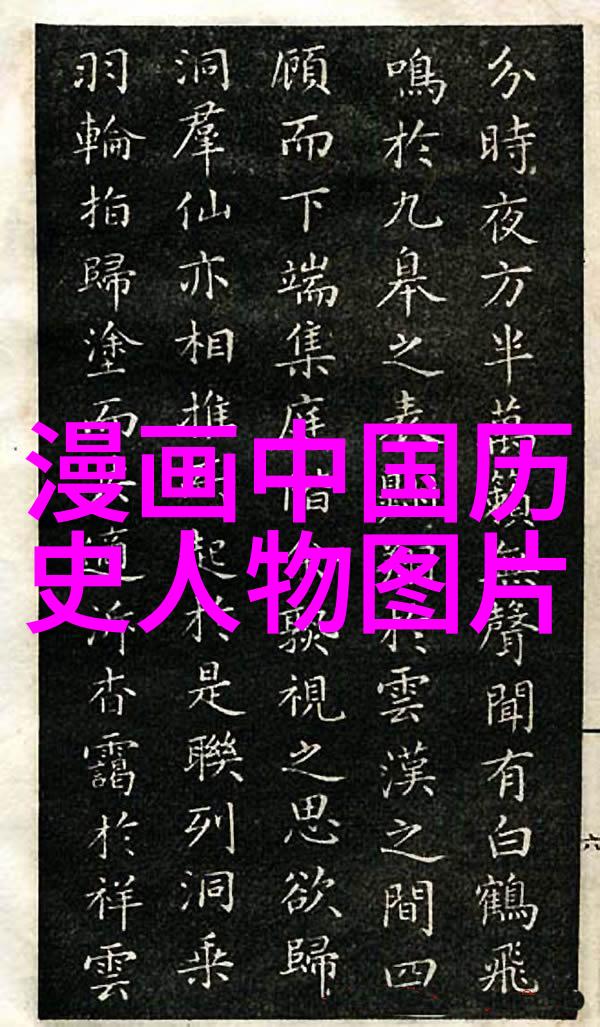 漫画中国历
史人物图片
分時夜方半萬籟無聲聞有白鶴飛
鳴於九皋之表於雲漢之間四
顧而下端集庭視之思欲歸
洞羣仙亦相推起於是聯列洞乘
羽輪指歸塗而杳靄於祥雲
六